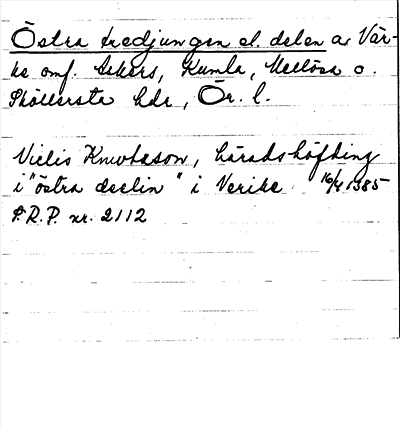 Östra tredjungen el. delen av När-
ke omf. Askers, Kumla, Mellösa o.
Sköllersta hdr, Ör. l.
Nielis Knwtsson, häradshöfding
i "östra deelin" i Nerike 16/4 1385
S.R.P. nr. 2112